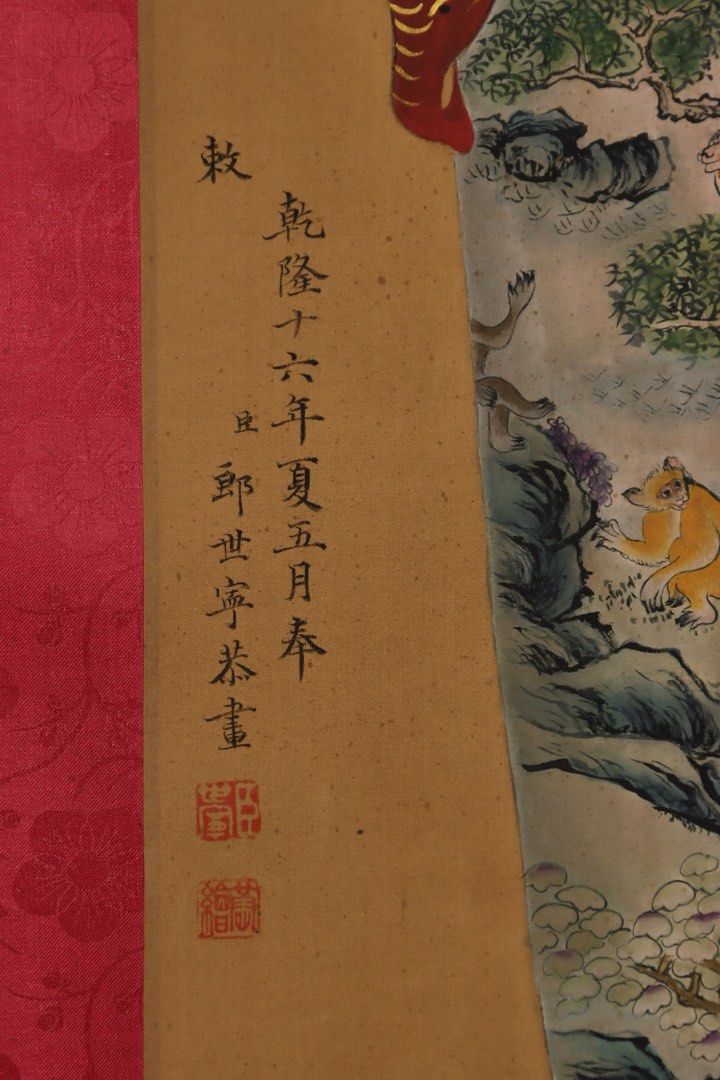 乾隆十六年夏五月奉
敕
臣郎世寧恭畫